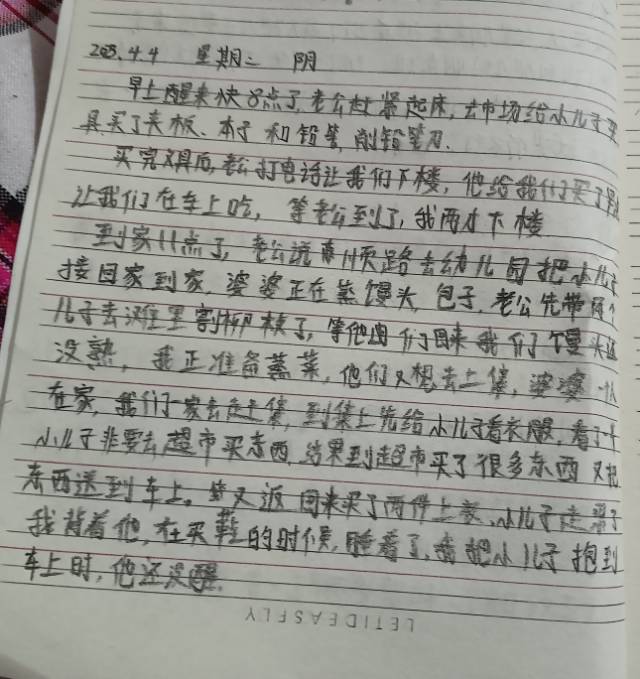 2023.4.4 星期二 阴
早上醒来快8点了,老公赶紧起床,去市场给小儿子买
具,买了夹板、本子和铅笔,削铅笔刀.
买完文具后,老公打电话让我们下楼,他给我们买了
让我们在车上吃,等老公到了,我两才下楼
到家11点了,老公说顺路去幼儿园把小儿子
接回家到家,婆婆正在蒸馒头,包子,老公先带两个
儿子去滩里割柳枝了,等他们回来我们馒头还
没熟,我正准备蒸菜,他们又想去上集,婆婆一人
在家,我们一家去赶集,到集上先给小儿子看衣服,看了
小儿子非要去超市买东西,结果到超市买了很多东西又把
东西送到车上。又返回来买了两件上衣,小儿子走累了
我背着他,在买鞋的时候,睡着了,把小儿子抱到
车上时,他还没醒.
LETIDEASFLY